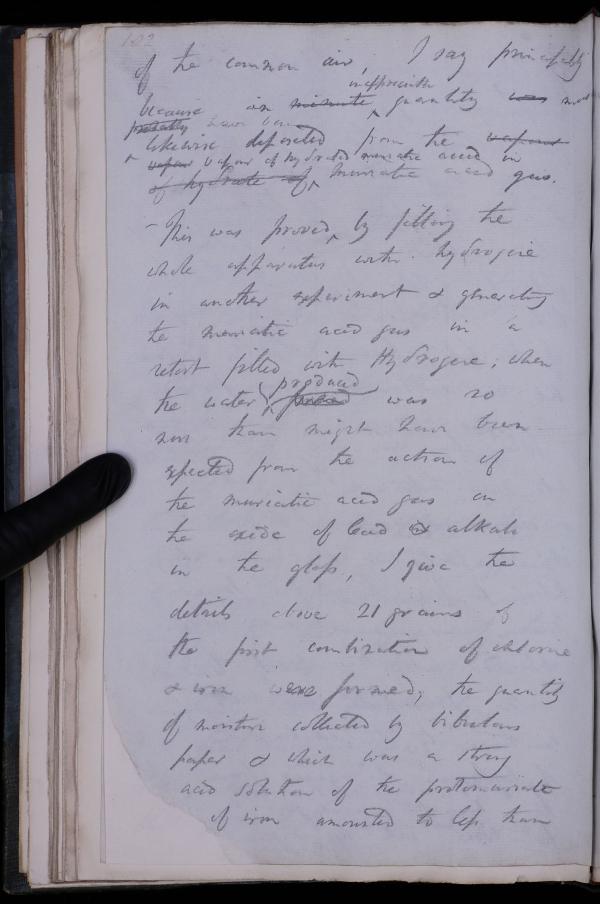 102
of the common air; I say principally
because an minute inappreciable quantity was must
probably have been
likewise deposited from the vapour
vapor vapour of hydrated muriatic acid in
of hydrate of muriatic acid gas.
- This was proved, by filling the
whole apparatus with hydrogene
in another experiment & generating
the muriatic acid gas in a
retort filled with Hydrogene; when
the water produced found was no
more than might have been
expected from the action of
the muriatic acid gas on
the oxide of lead & alkali
in the glass, I give the
details above 21 grains of
the first combination of chlorine
& iron were formed; the quantity
of moisture collected by bibulous
paper & which was a strong
acid solution of the protomuriate
of iron amounted to less than